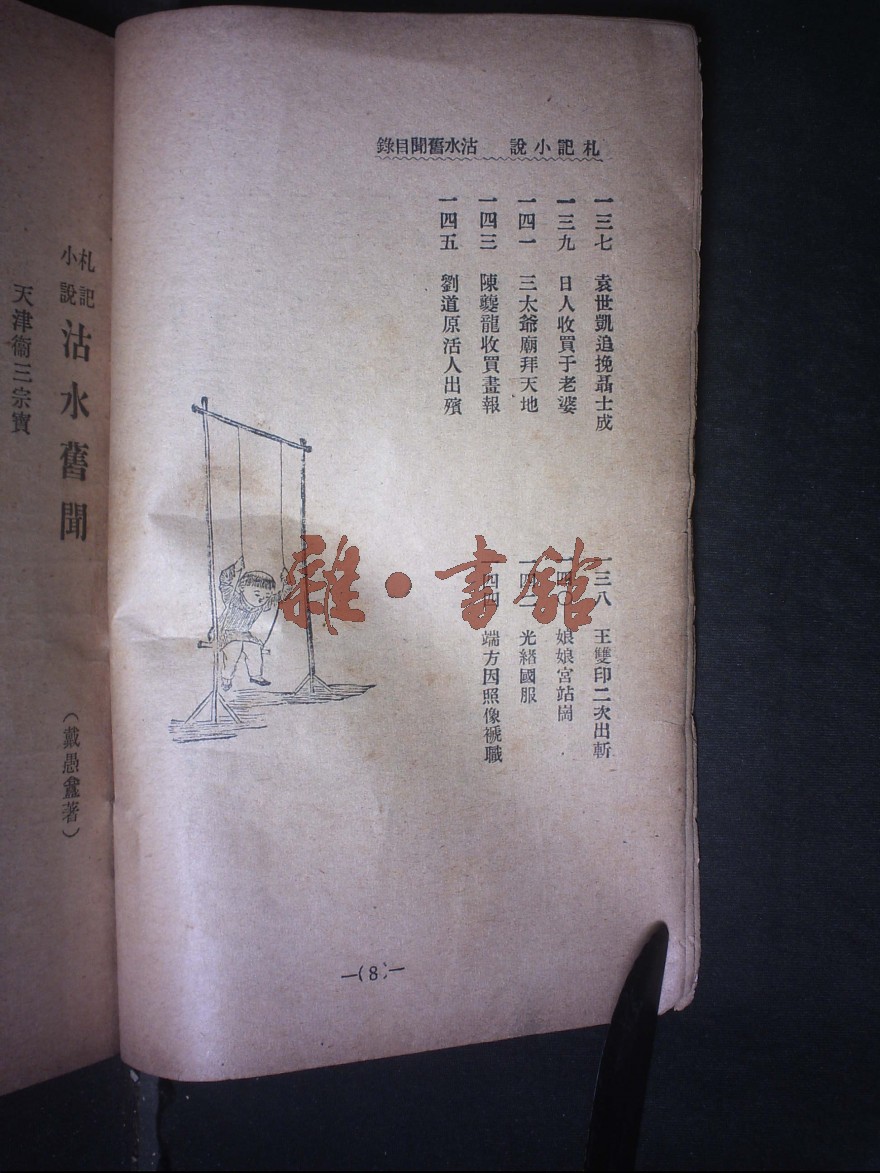 札記小說 沽水舊聞目錄
一三七 袁世凱追挽聶士成 一三八 王雙印二次出斬
一三九 日人收買于老婆 一四〇 娘娘宮站崗
一四一 三太爺廟拜天地 一四二 光緒國服
一四三 陳夔龍收買畫報 一四四 端方因照像褫職
一四五 劉道原活人出殯
—(8)—
札記小說 沽水舊聞 (戴愚盦著)
天津衞三宗寶
雜·書館